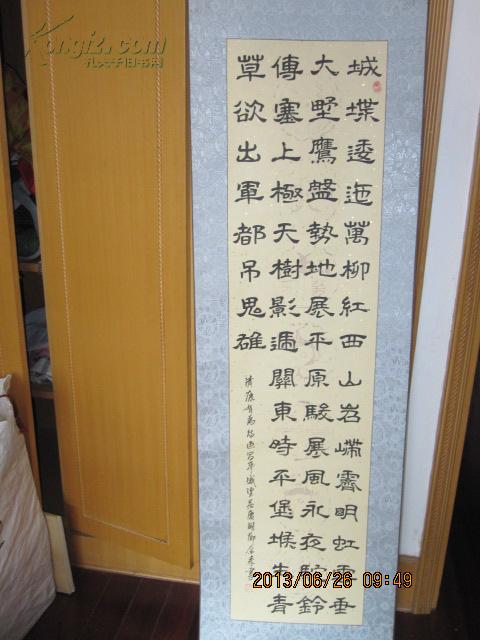 Kongfz.com
孔夫子旧书网
城堞逶迤萬柳紅西山岧嵽霽明虹雲垂
大墅鷹盤勢地展平原駿展風永夜駝鈴
傳塞上極天樹影遞關東時平堡堠生青
草欲出軍都吊鬼雄
清康有為過昌平城望居庸關
2013/06/26 09:49